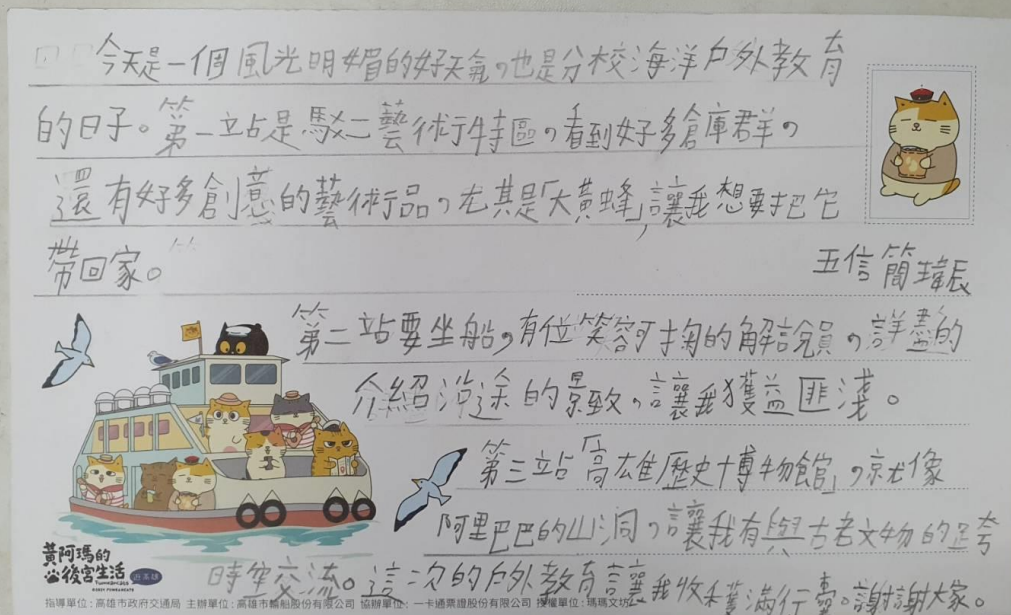 今天是一個風光明媚的好天氣,也是分校海洋戶外教育
的日子。第一站是駁二藝術特區,看到好多倉庫群,
還有好多創意的藝術品,尤其是「大黃蜂」,讓我想要把它
帶回家。
五信 簡瑋辰
第二站要坐船,有位笑容可掬的解說員,詳盡的
介紹沿途的景致,讓我獲益匪淺。
第三站「高雄歷史博物館」,就像
阿里巴巴的山洞,讓我有與古老文物的跨
時空交流。這次的戶外教育讓我收穫滿行囊。謝謝大家。
黃阿瑪的
後宮生活
遊高雄
指導單位:高雄市政府交通局 主辦單位:高雄市輪船股份有限公司 協辦單位:一卡通票證股份有限公司 授權單位:瑪瑪文坊